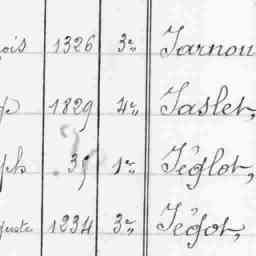 ois 1326 3e Jarnou
1829 4e Jaslet,
ph 35 1e Jéglot,
uste 1234 3e Jégot,